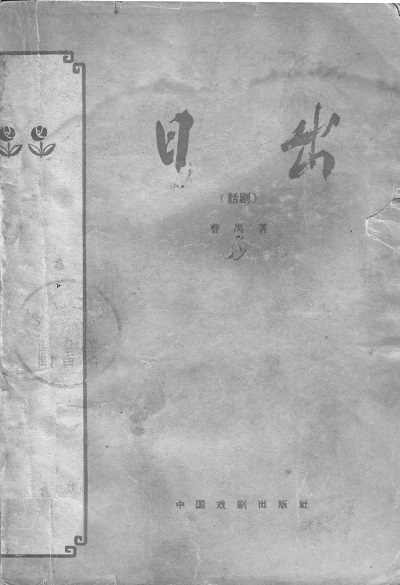 日出
(話剧)
曹禺著
中国戏剧出版社